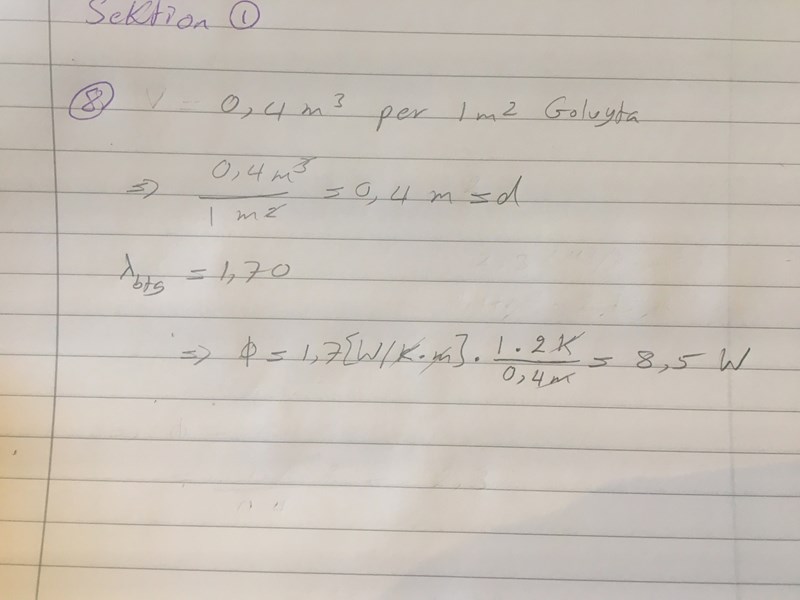 Sektion ①
⑧ V = 0,4 m³ per 1 m² Golvyta
⇒ 0,4 m³ / 1 m² = 0,4 m = d
λbtg = 1,70
⇒ Φ = 1,7 [W/K·m] · 1·2K / 0,4m = 8,5 W